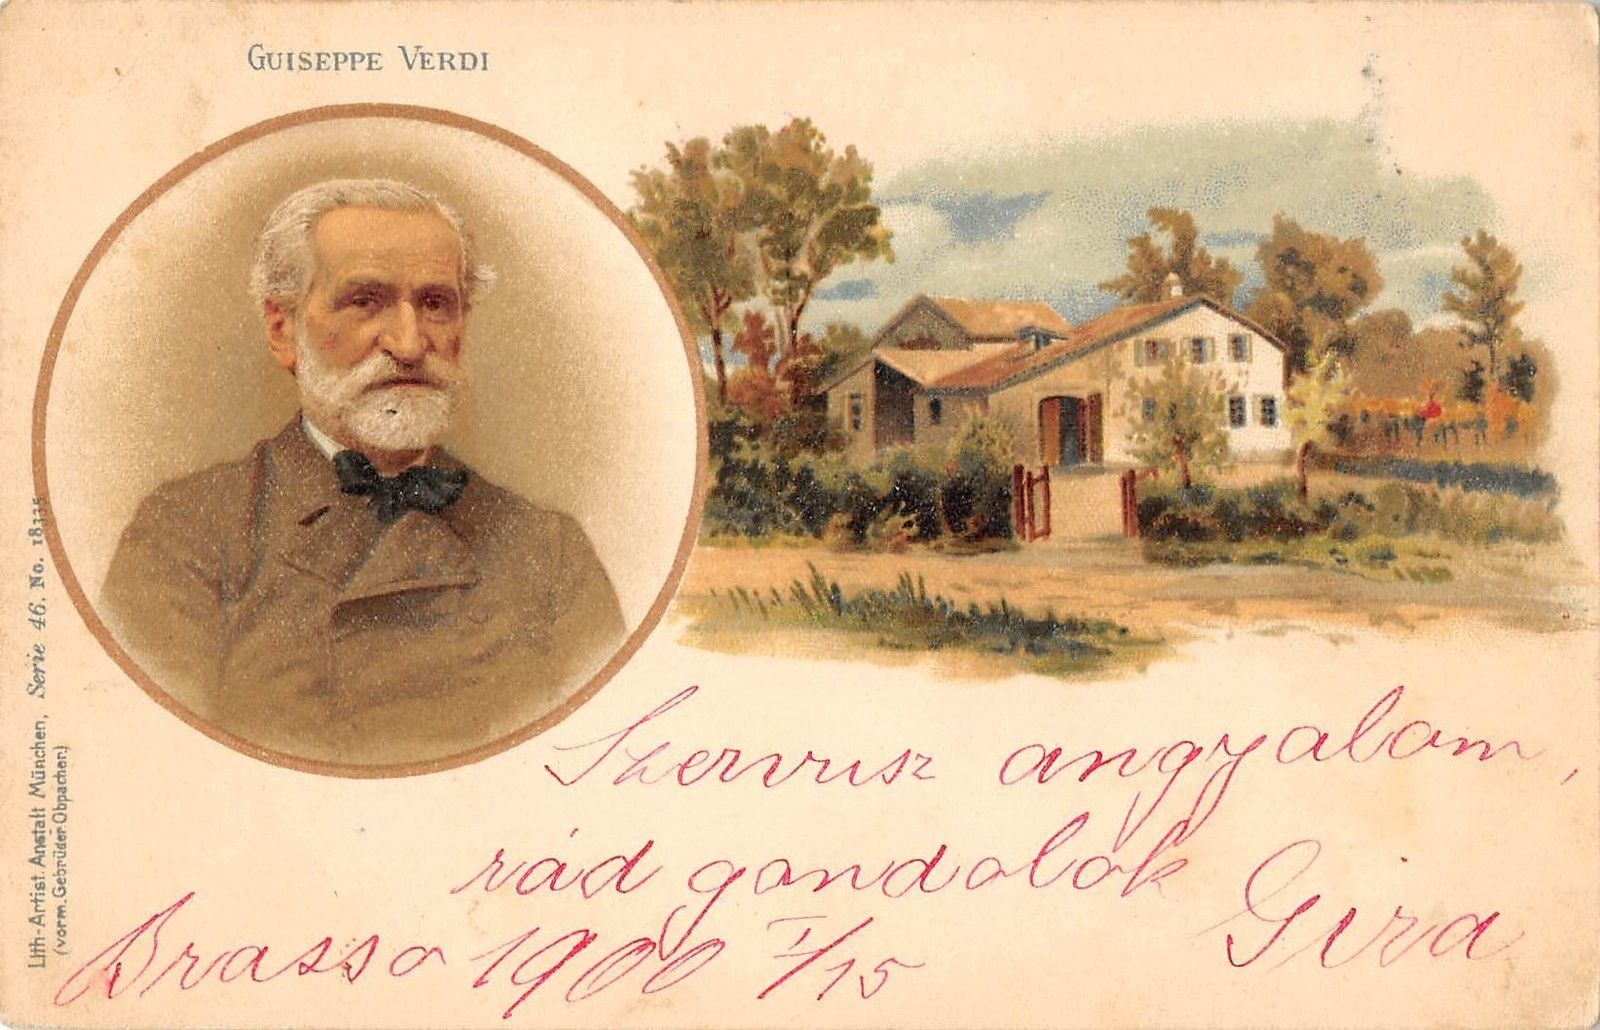 GUISEPPE VERDI
Lith-Artist. Anstalt München, Serie 46. No. 18335
(vorm. Gebrüder Obpacher.)
Szervusz angyalom,
rád gondolok
Gira
Brasso 1900 I/15